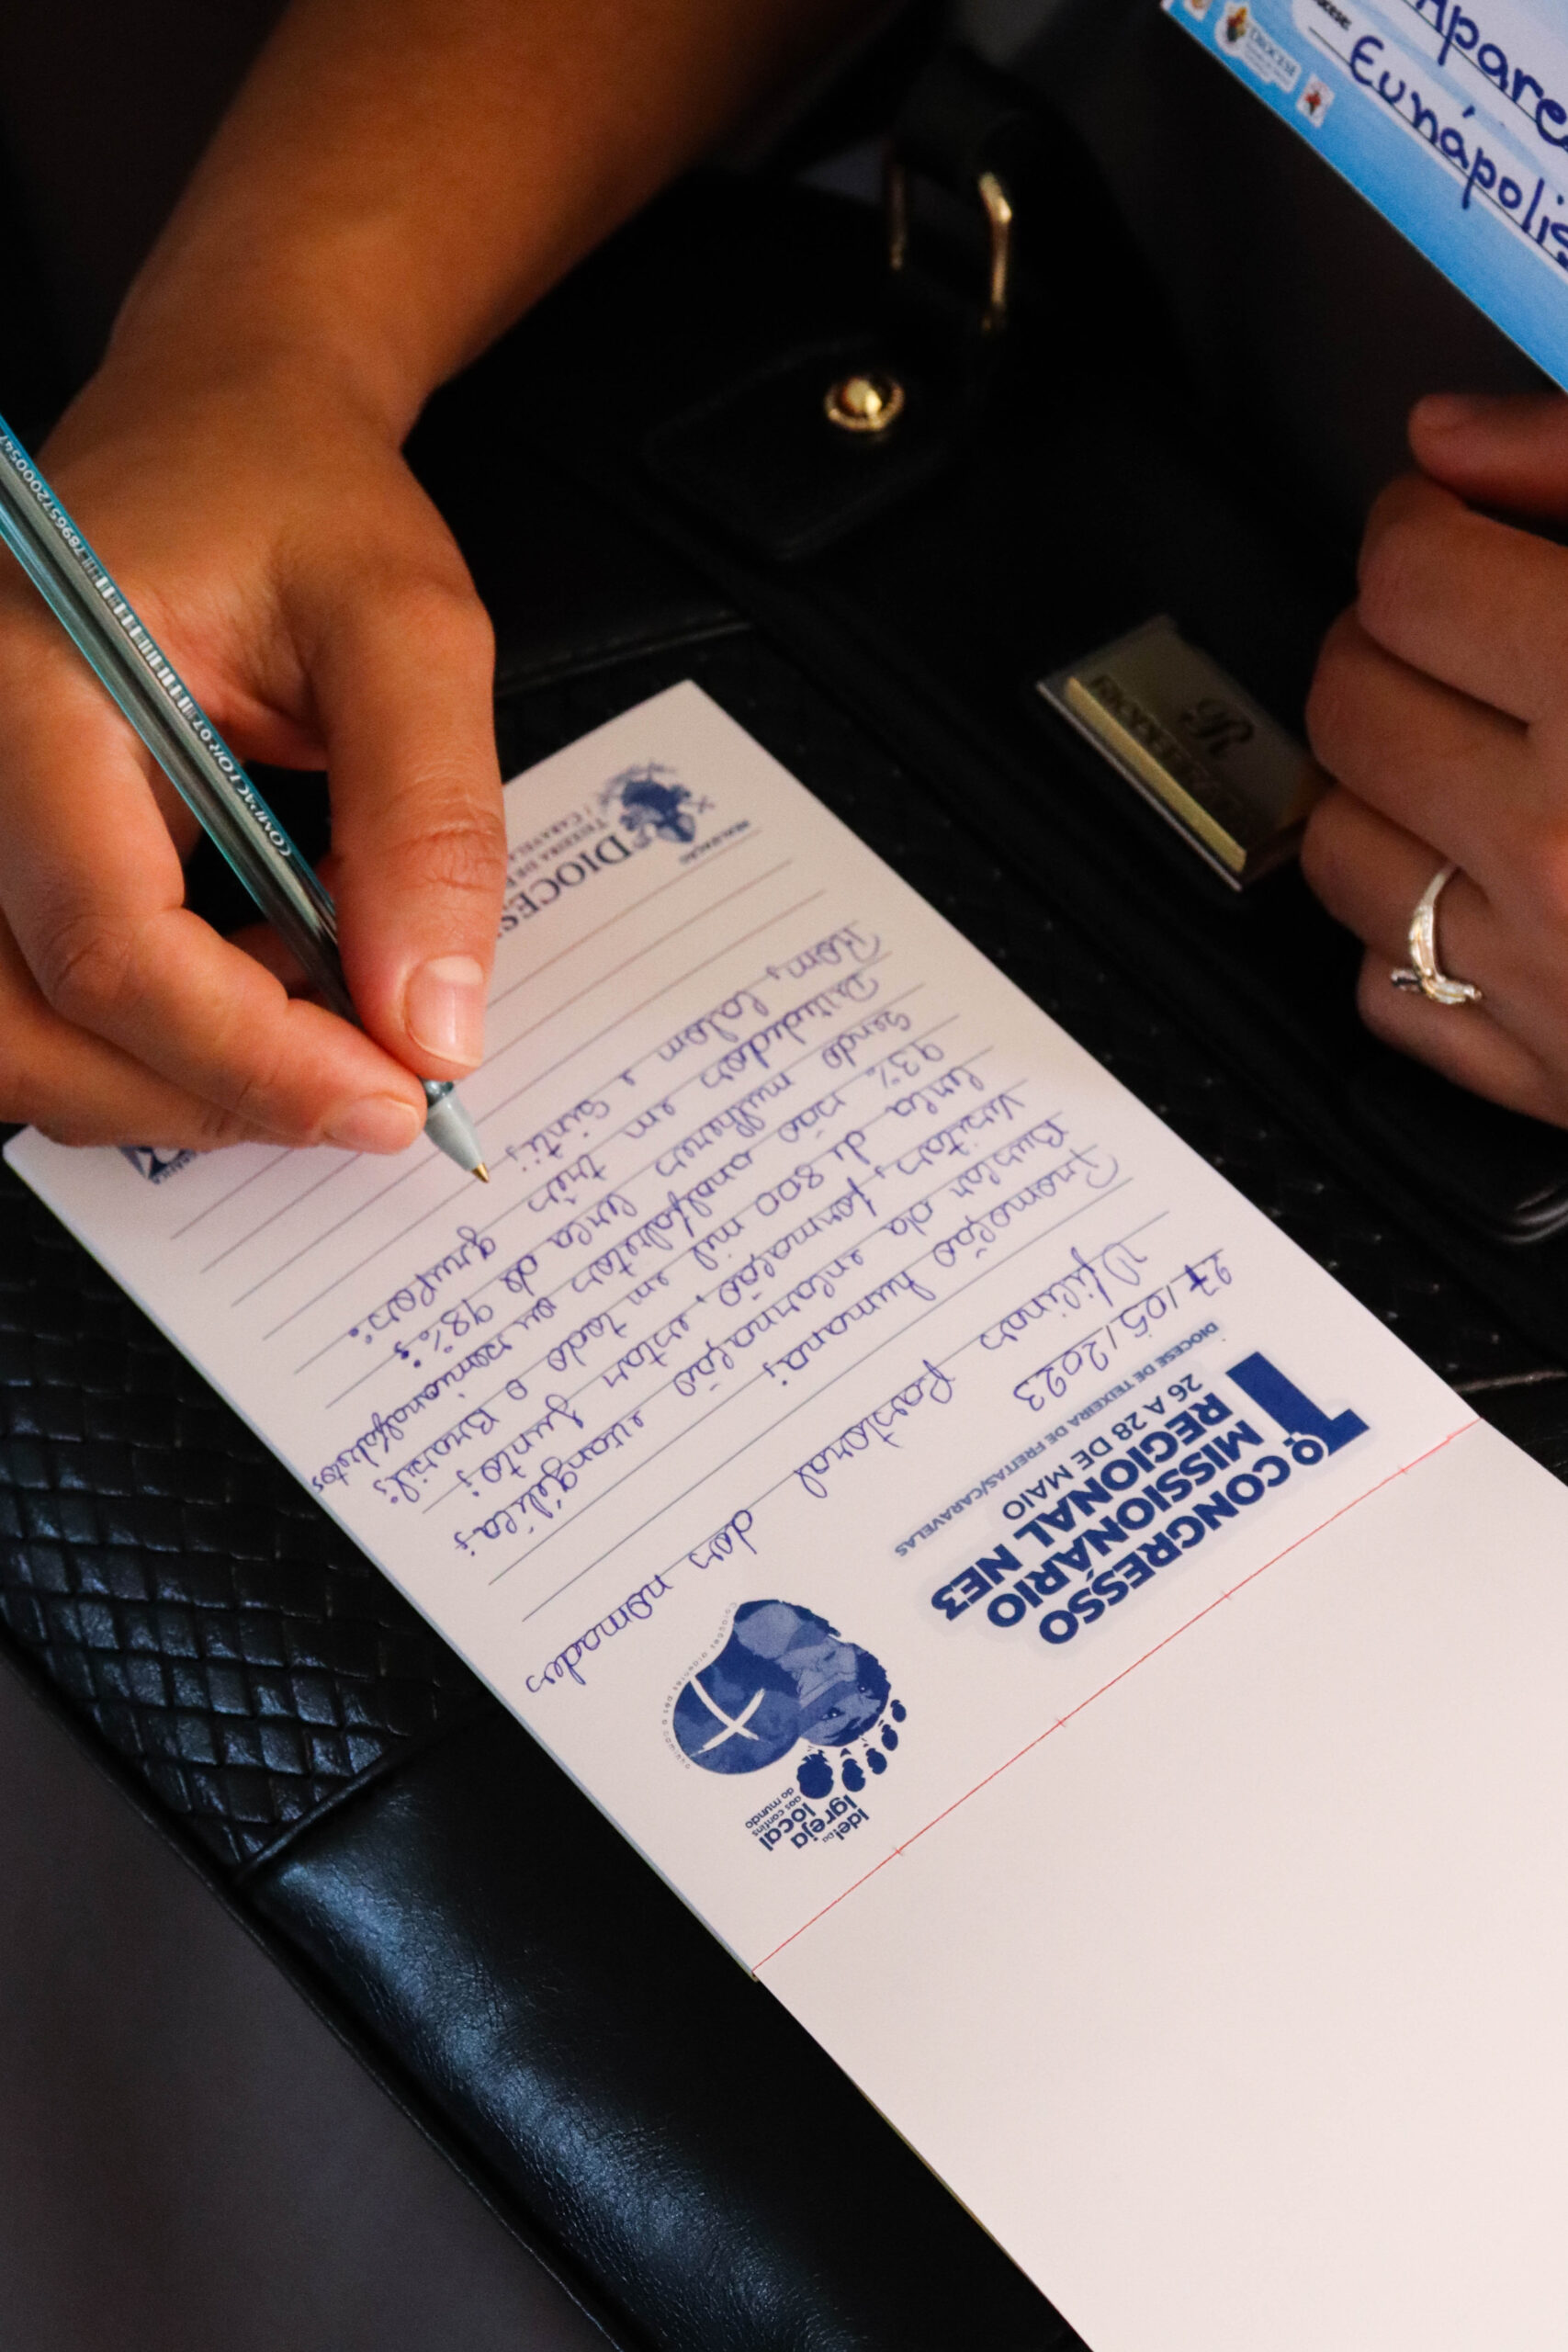 Apare
Eunápolis
DIOCESE
COMPACTOR 07
7896572000547
R
1º CONGRESSO
MISSIONÁRIO
REGIONAL NE3
26 A 28 DE MAIO
DIOCESE DE TEIXEIRA DE FREITAS/CARAVELAS
ide! da
igreja
local
aos confins
do mundo
27/05/2023
Oficinas Pastoral dos nomades
Promoção humana;
Buscar da encarnação evangélica;
Visitas, formação, estar junto;
Cerca de 800 mil em todo o Brasil;
93% não analfabetos ou semianalfabetos
Sendo mulheres cerca de 98%;
Divididos em três grupos:
Rom, Calon e Sinti;
REALIZAÇÃO
DIOCES
TEIXEIRA DE
/ CARAVEL